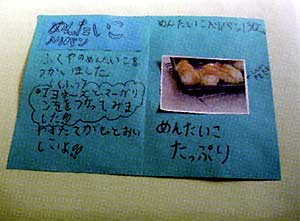 めんたいこ
入りパン
ふくやのめんたいこを
つかいました
マヨネーズとマーガリ
ンをつかってみま
した!!
やきたてがもっとおい
しいよ!!
めんたいこ入りパン130
めんたいこ
たっぷり